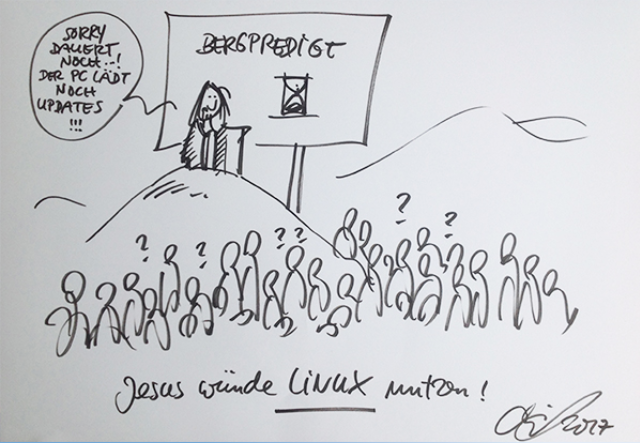 SORRY
DAUERT
NOCH...!
DER PC LÄDT
NOCH
UPDATES
!!!
BERGPREDIGT
?
?
? ?
?
?
Jesus würde LINUX nutzen!
2017